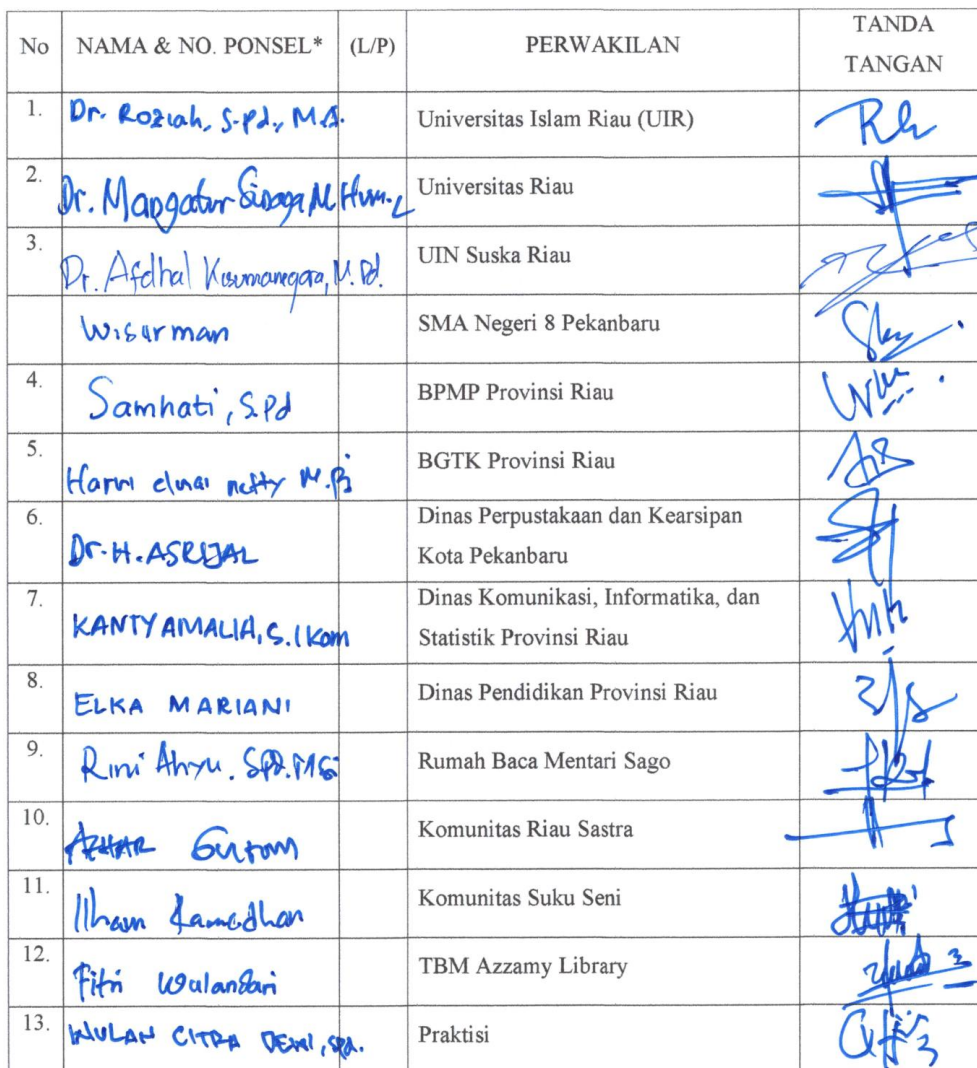 No NAMA & NO. PONSEL* (L/P) PERWAKILAN TANDA
TANGAN
1. Dr. Roziah, S.Pd., M.A. Universitas Islam Riau (UIR)
2. Dr. Mangatur Sinaga M.Hum. L Universitas Riau
3. Dr. Afdhal Kusumanegara, M.Pd. UIN Suska Riau
Wisurman SMA Negeri 8 Pekanbaru
4. Samhati, S.Pd BPMP Provinsi Riau
5. BGTK Provinsi Riau
6. Dr. H. ASRIJAL Dinas Perpustakaan dan Kearsipan
Kota Pekanbaru
7. KANTY AMALIA, S.I Kom Dinas Komunikasi, Informatika, dan
Statistik Provinsi Riau
8. ELKA MARIANI Dinas Pendidikan Provinsi Riau
9. Rini Ahyu. SPd. MSi Rumah Baca Mentari Sago
10. AZHAR Komunitas Riau Sastra
11. Ilham Ramadhan Komunitas Suku Seni
12. Fitri Wulandari TBM Azzamy Library
13. WULAN CITRA DEWI, SPd. Praktisi